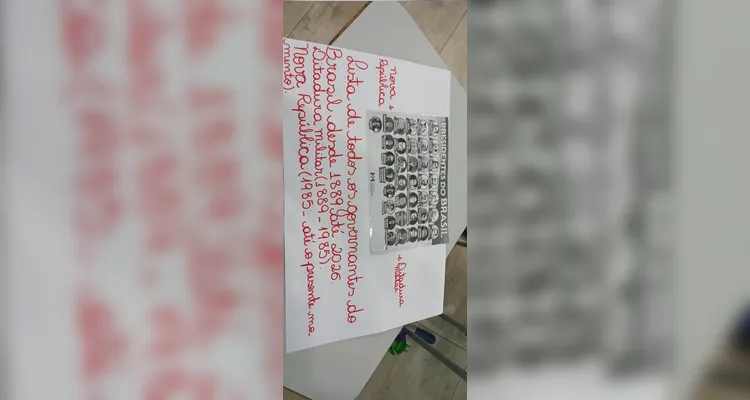 PRESIDENTES DO BRASIL
Nova
República
Ditadura
militar
Lista de todos os governantes do
Brasil desde 1889 até 2026.
Ditadura militar (1889 - 1985).
Nova República (1985 - até o presente mo
mento).